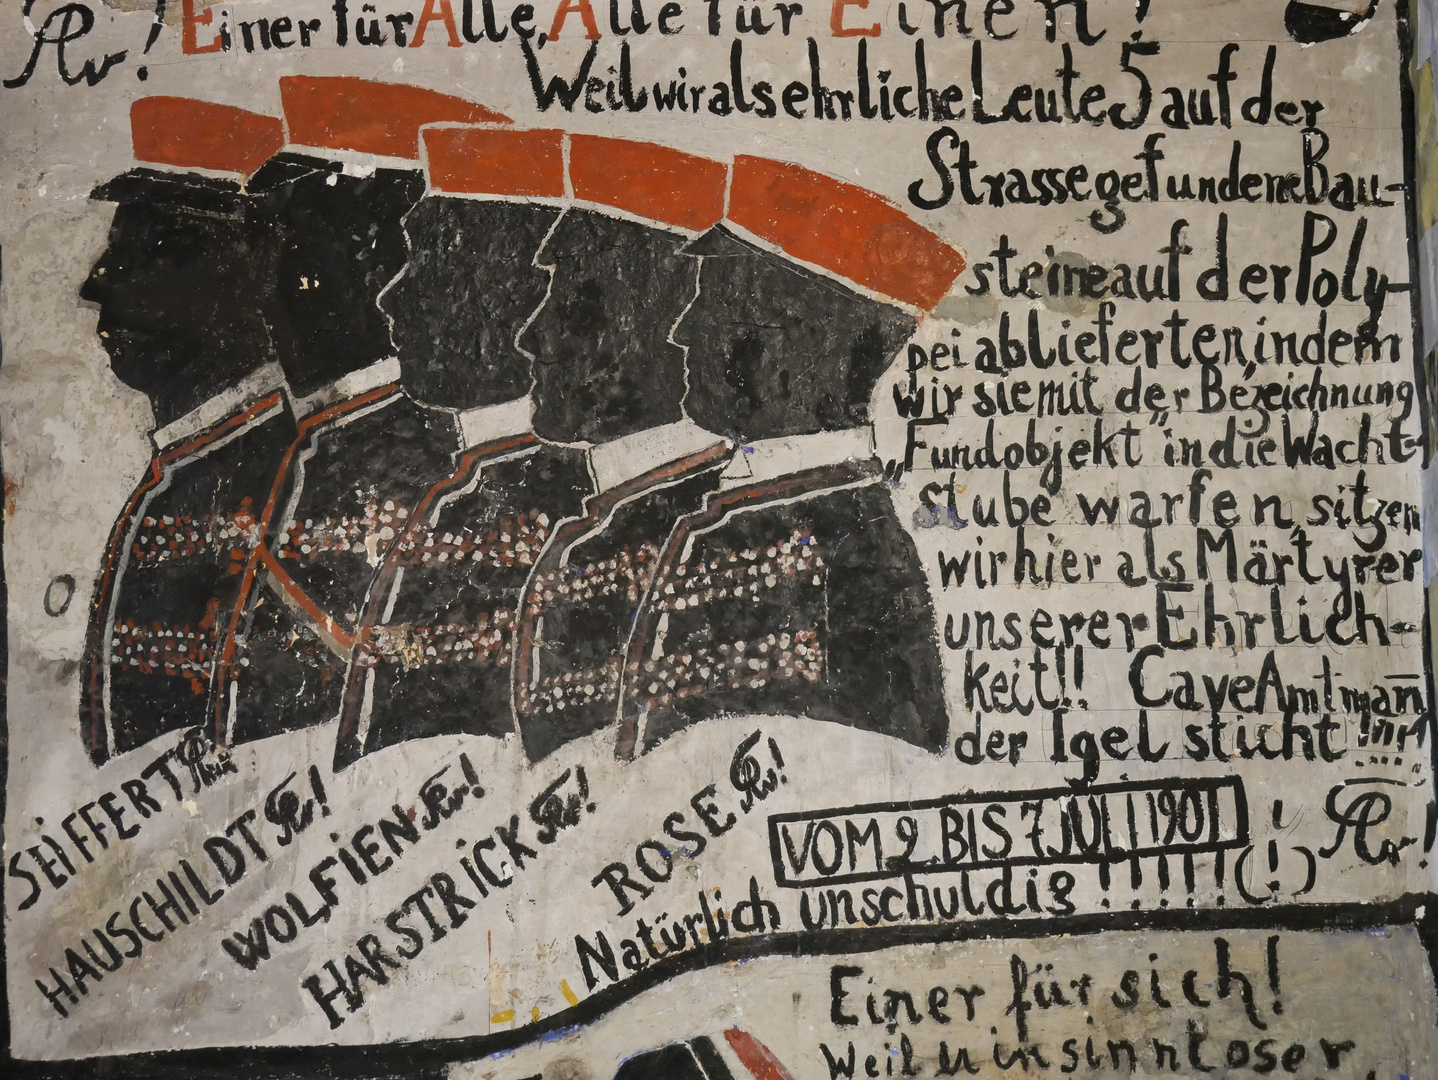 Einer für Alle, Alle für Einen!
Weil wir als ehrliche Leute 5 auf der
Strasse gefundene Bau-
steine auf der Poly-
pei ablieferten, indem
wir sie mit der Bezeichnung
„Fundobjekt“ in die Wacht-
stube warfen, sitzen
wir hier als Märtyrer
unserer Ehrlich-
keit!! Cave Amtmañ
der Igel sticht !!!!
SEIFFERT
HAUSCHILDT !
WOLFIEN !
HARSTRICK !
ROSE !
VOM 2. BIS 7 JULI 1901 !
Natürlich unschuldig !!!!!! (!)
Einer für sich!
Weil in sinnloser